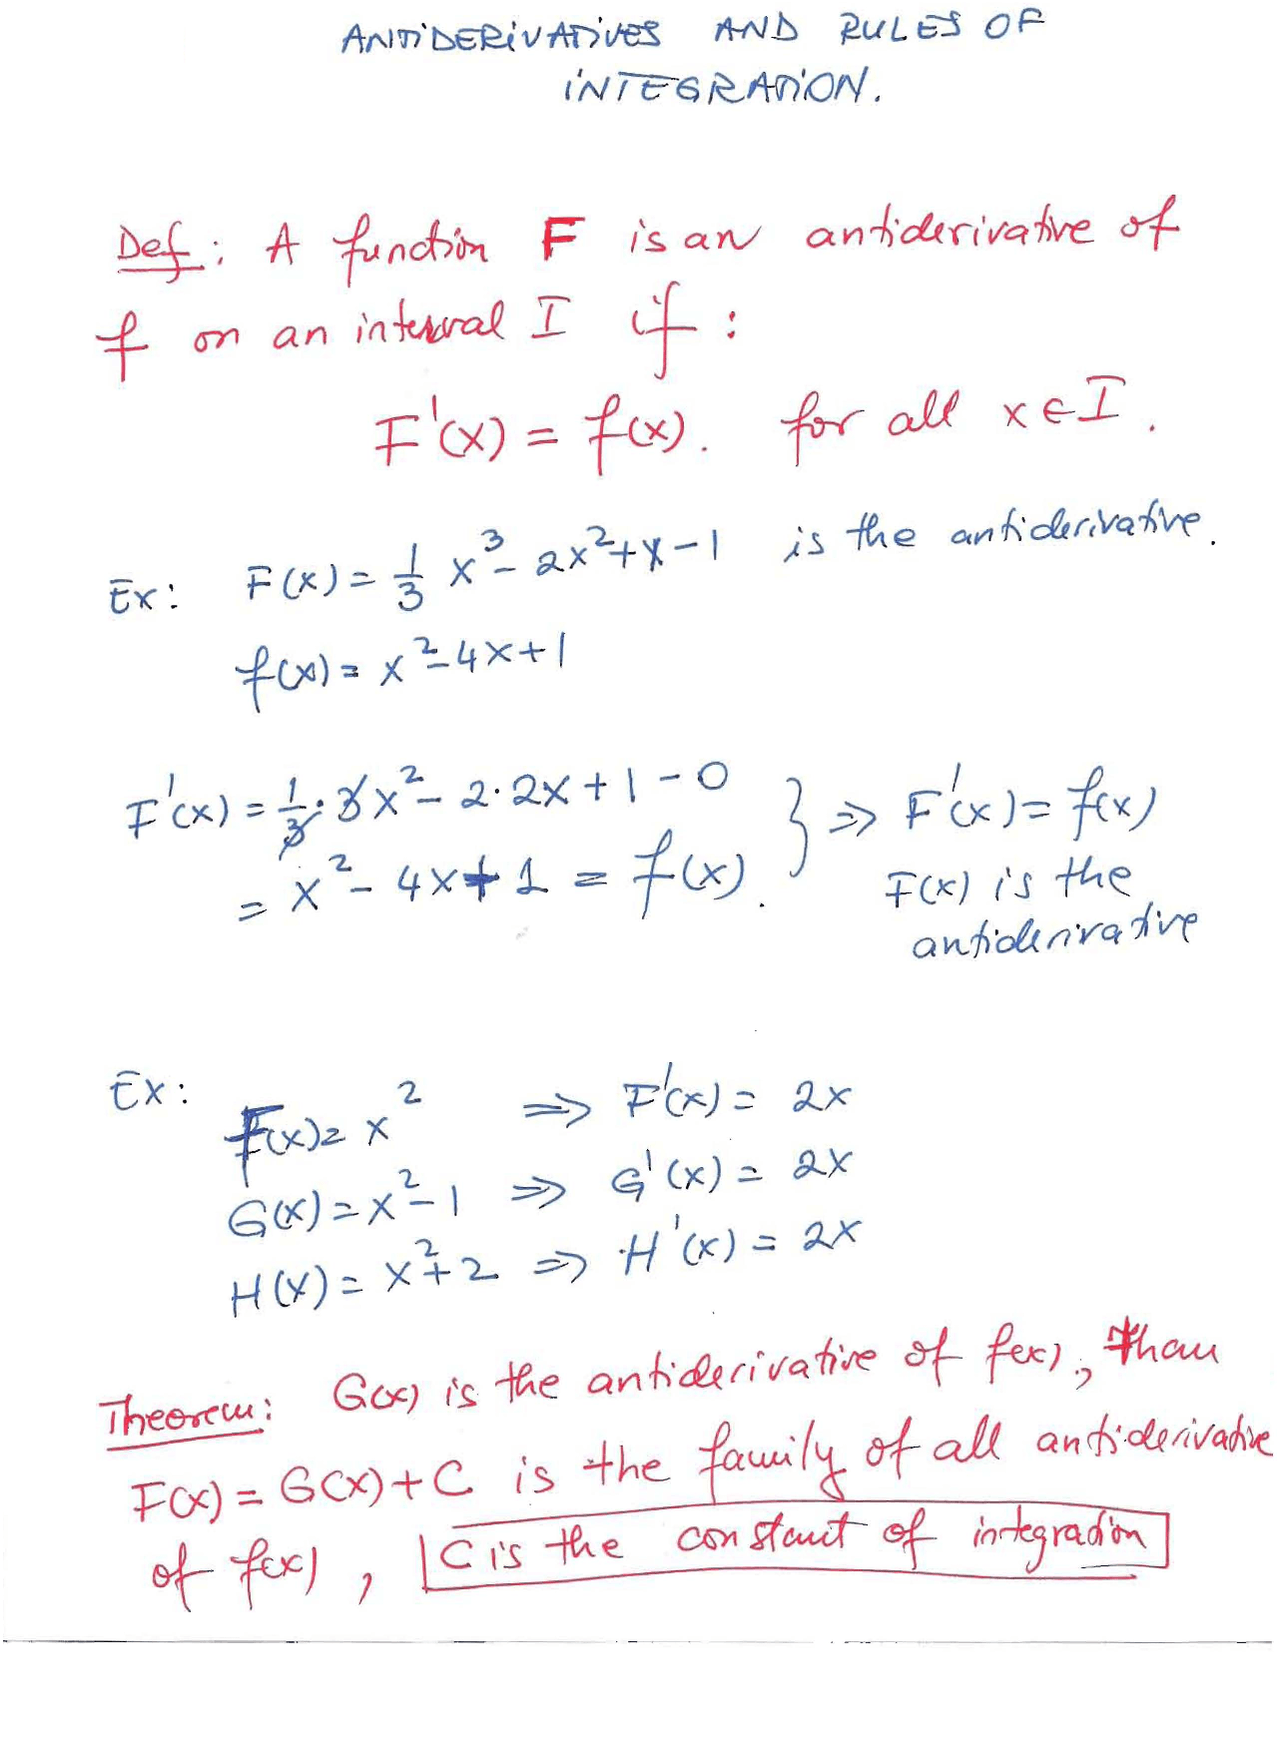 ANTIDERIVATIVES AND RULES OF
INTEGRATION.
Def: A function F is an antiderivative of
f on an interval I if :
F'(x) = f(x). for all x ∈ I.
Ex: F(x) = 1/3 x³ - 2x² + x - 1 is the antiderivative.
f(x) = x² - 4x + 1
F'(x) = 1/3 · 3x² - 2·2x + 1 - 0 } ⇒ F'(x) = f(x)
= x² - 4x + 1 = f(x). F(x) is the
antiderivative
Ex: F(x) = x² ⇒ F'(x) = 2x
G(x) = x² - 1 ⇒ G'(x) = 2x
H(x) = x² + 2 ⇒ H'(x) = 2x
Theorem: G(x) is the antiderivative of f(x), than
F(x) = G(x) + C is the family of all antiderivative
of f(x), C is the constant of integration